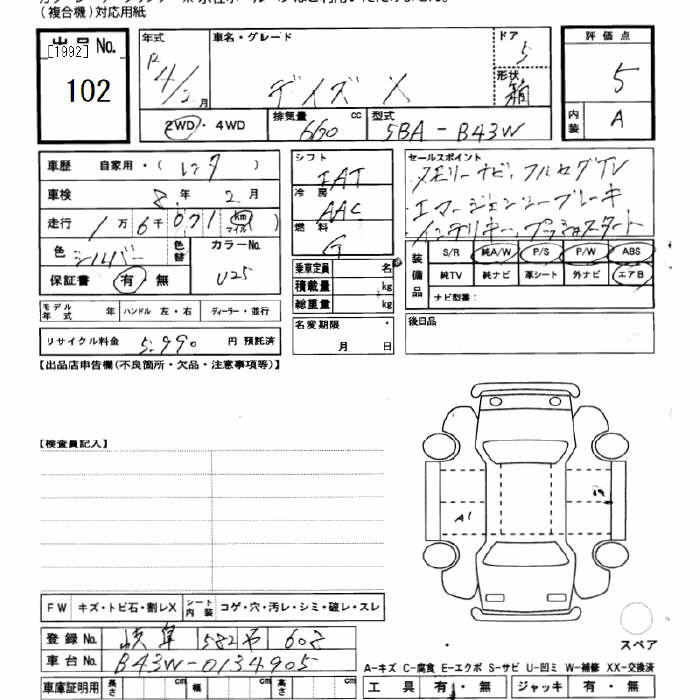 (複合機)対応用紙
出品No.
[1992]
102
年式 車名・グレード ドア 5
R4/2月 デイズ X 形状 箱
2WD・4WD 排気量 660 cc 型式 5BA-B43W
評価点
5
内装 A
車歴 自家用・(レンタ)
車検 8年 2月
走行 1万6千071 (km マイル)
色 シルバー 色替 カラーNo. U25
保証書 有・無
モデル年式 年 ハンドル 左・右 ディーラー・並行
リサイクル料金 5,990 円 預託済
シフト
IAT
冷房
AAC
燃料
G
乗車定員 名
積載量 kg
総重量 kg
名変期限・
月 日
セールスポイント
メモリーナビ、フルセグTV
エマージェンシーブレーキ
インテリキー、プッシュスタート
装備品 S/R 純A/W P/S P/W ABS
純TV 純ナビ 革シート 外ナビ エアB
ナビ型番:
後日品
【出品店申告欄(不良箇所・欠品・注意事項等)】
【検査員記入】
A1
FW キズ・トビ石・割レX シート内装 コゲ・穴・汚レ・シミ・破レ・スレ
登録No. 岐阜 582 や 608
車台No. B43W-0134905
車庫証明用 長さ cm 幅 cm 高さ cm
スペア
A-キズ C-腐食 E-エクボ S-サビ U-凹ミ W-補修 XX-交換済
工具 有・無 ジャッキ 有・無